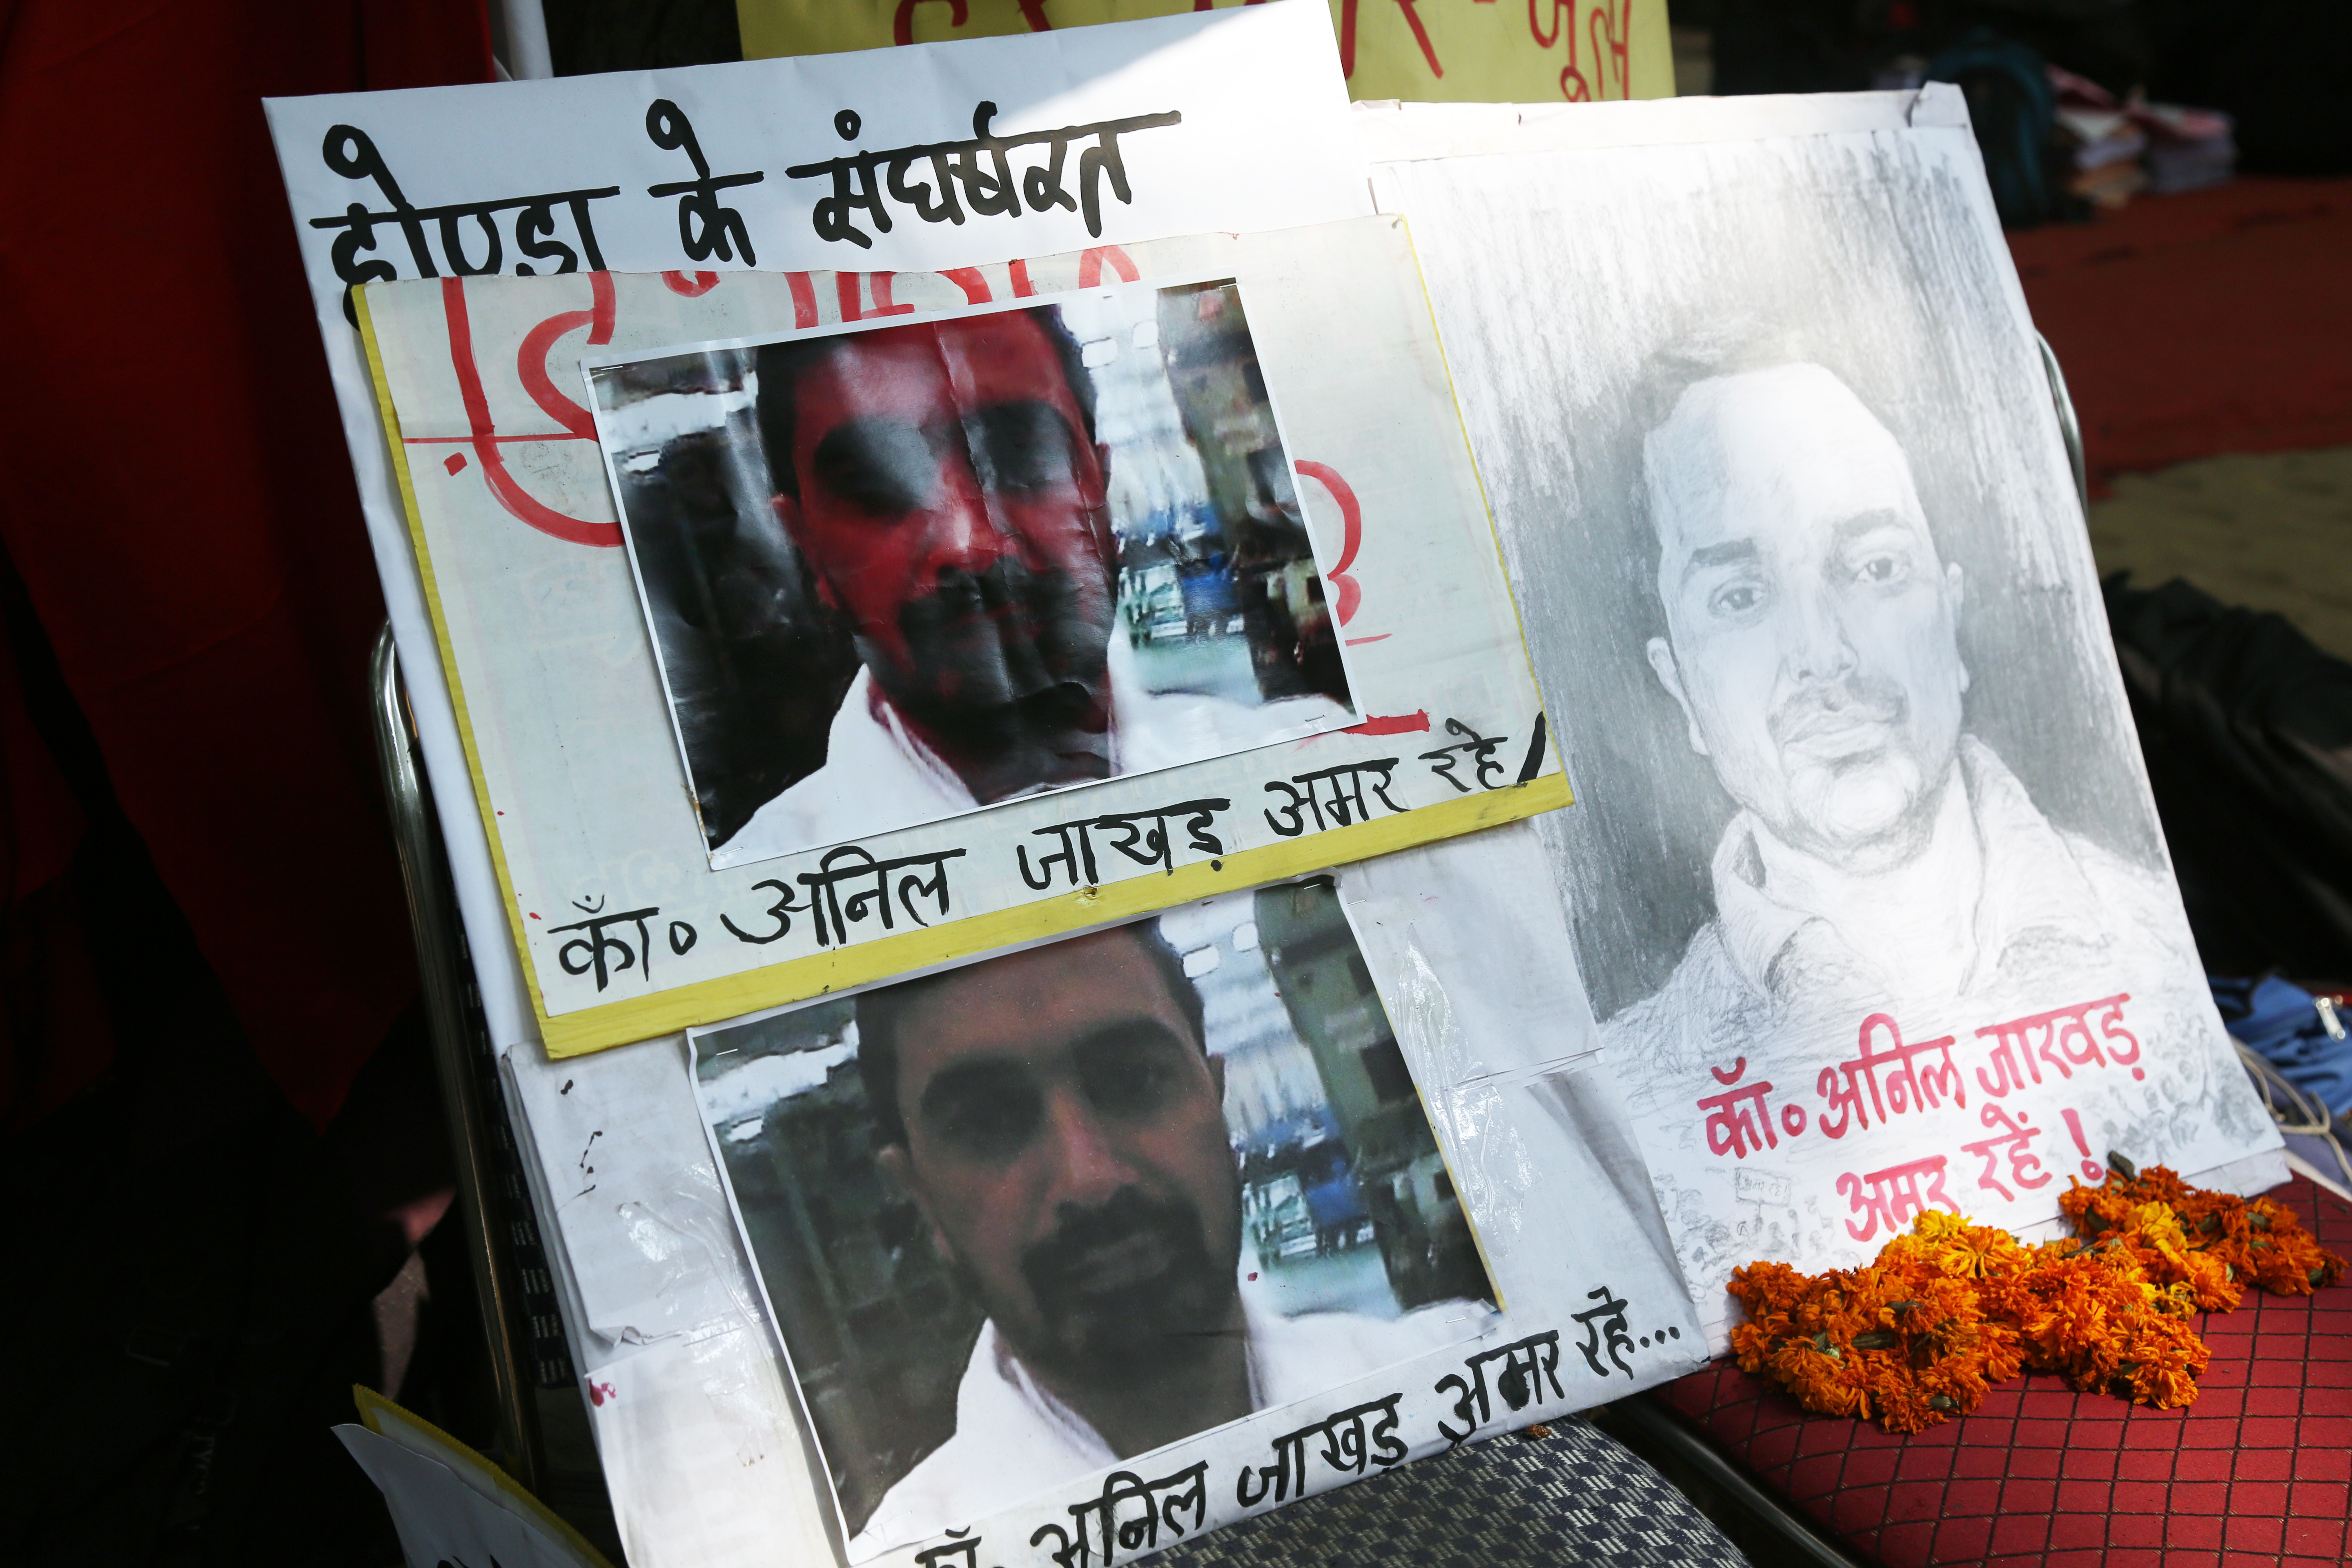 होण्डा के संघर्षरत
कॉ॰ अनिल जाखड़ अमर रहे
कॉ॰ अनिल जाखड़
अमर रहें !
कॉ॰ अनिल जाखड़ अमर रहे...